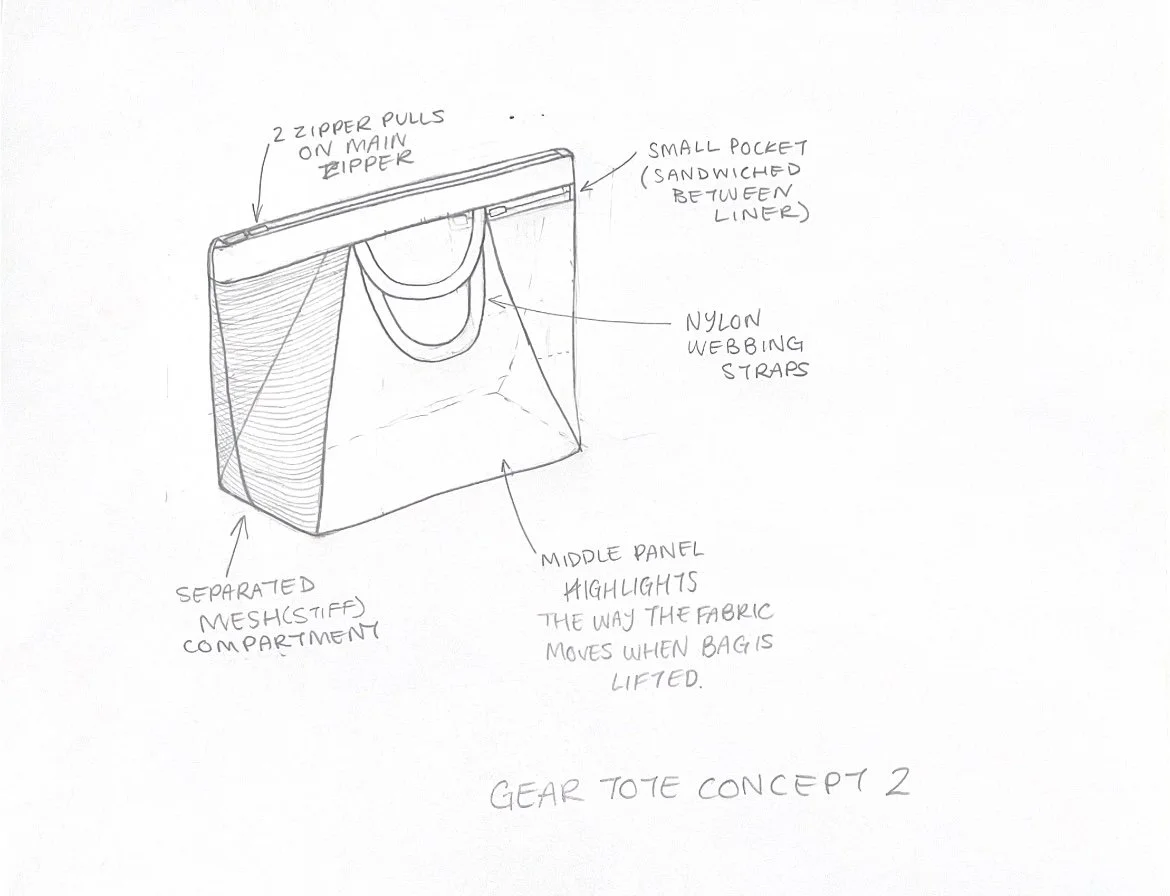 2 ZIPPER PULLS
ON MAIN
ZIPPER
SMALL POCKET
(SANDWICHED
BETWEEN
LINER)
NYLON
WEBBING
STRAPS
SEPARATED
MESH(STIFF)
COMPARTMENT
MIDDLE PANEL
HIGHLIGHTS
THE WAY THE FABRIC
MOVES WHEN BAG IS
LIFTED.
GEAR TOTE CONCEPT 2